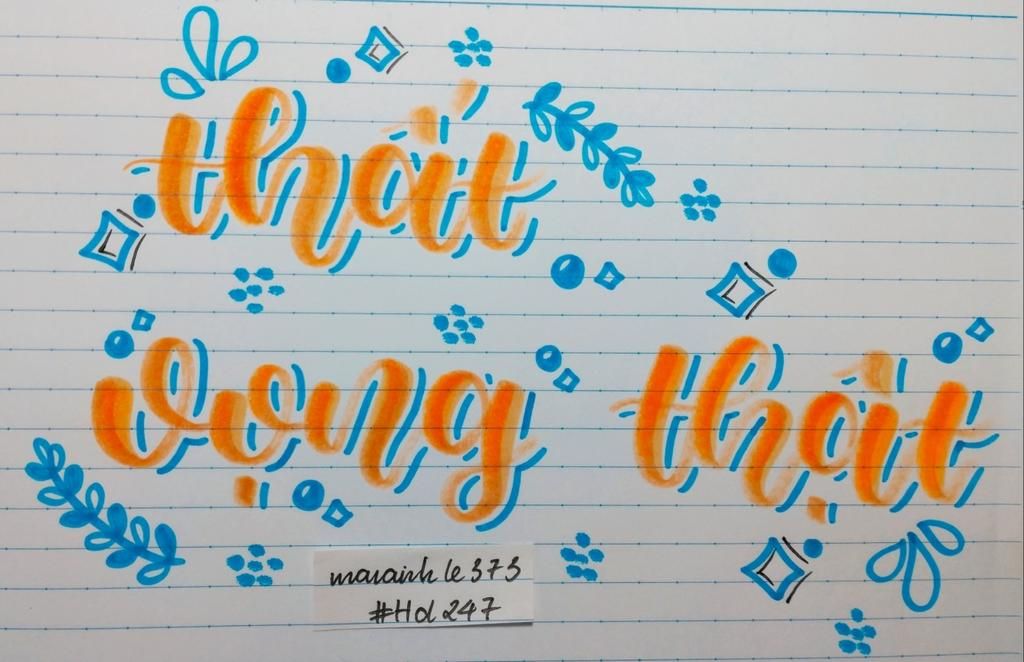 thất
vọng thật
#Hd247